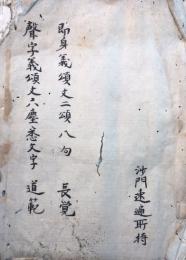 沙門速遍所持
即身義頌文二頌八句　長覺
聲字義頌文六塵悉文字　道範